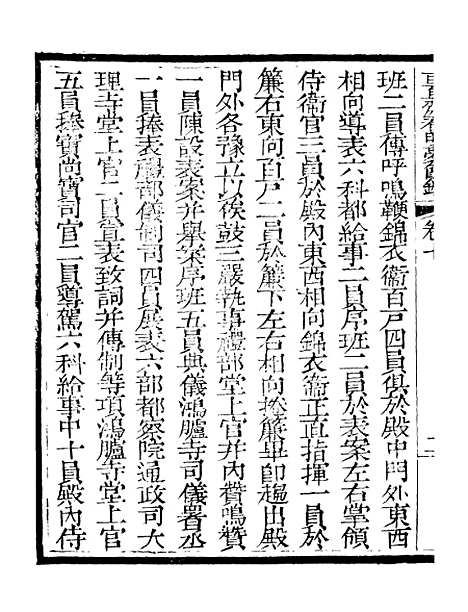 春明夢餘錄 卷七 二
班二員傳呼鳴鞭錦衣衞百戶四員俱於殿中門外東西
相向導表六科都給事二員序班二員於表案左右掌領
侍衞官三員於殿內東西相向錦衣衞正直指揮一員於
簾右東向百戶二員於簾下左右相向捲簾畢即趨出殿
門外各豫立以俟鼓三嚴執事禮部堂上官幷內贊鳴贊
一員陳設表案幷舉案序班五員典儀鴻臚寺司儀署丞
一員捧表禮部儀制司四員展表六部都察院通政司大
理寺堂上官二員宣表致詞幷傳制等項鴻臚寺堂上官
五員捧寶尚寶司官二員導駕六科給事中十員殿內侍